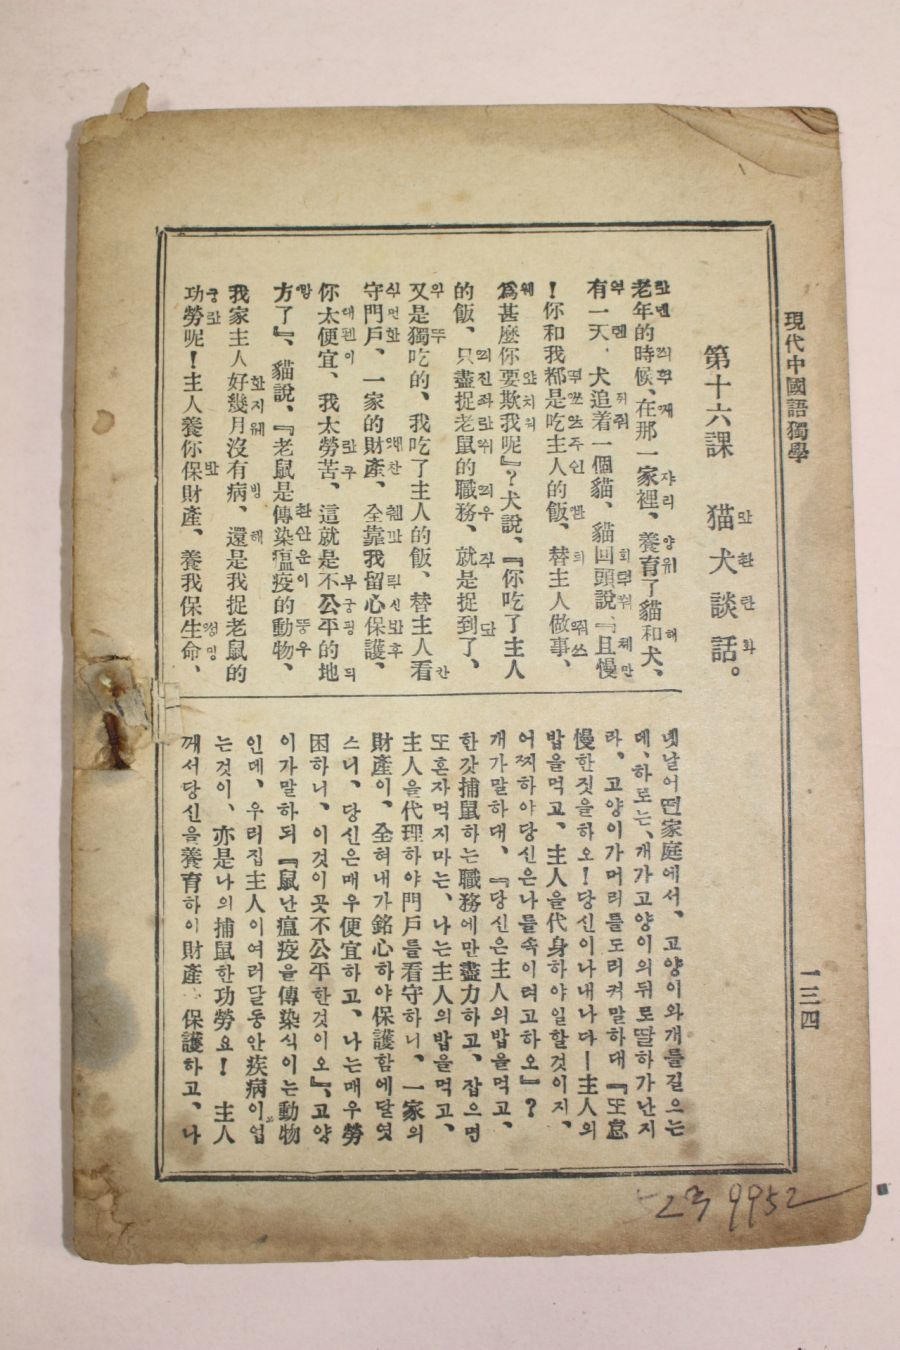 現代中國語獨學
一三四
第十六課 猫犬談話。
老年的時候、在那一家裡、養育了貓和犬、
有一天、犬追着一個貓、貓回頭說、『且慢
!你和我都是吃主人的飯、替主人做事、
爲甚麼你要欺我呢』?犬說、『你吃了主人
的飯、只盡捉老鼠的職務、就是捉到了、
又是獨吃的、我吃了主人的飯、替主人看
守門戶、一家的財產、全靠我留心保護、
你太便宜、我太勞苦、這就是不公平的地
方了』、貓說、『老鼠是傳染瘟疫的動物、
我家主人好幾月沒有病、還是我捉老鼠的
功勞呢!主人養你保財產、養我保生命、
녯날어떤家庭에서、고양이와개를길으는
데、하로는、개가고양이의뒤로딸하가난지
라、고양이가머리를도리켜말하대『또怠
慢한짓을하오!당신이나내나다ー主人의
밥을먹고、主人을代身하야일할것이지、
어찌하야당신은나를속이려고하오』?
개가말하대、『당신은主人의밥을먹고、
한갓捕鼠하는職務에만盡力하고、잡으면
또혼자먹지마는、나는主人의밥을먹고、
主人을代理하야門戶를看守하니、一家의
財產이、全혀내가銘心하야保護함에달엿
스니、당신은매우便宜하고、나는매우勞
困하니、이것이곳不公平한것이오』、고양
이가말하되『鼠난瘟疫을傳染식이는動物
인데、우리집主人이여러달동안疾病이업
는것이、亦是나의捕鼠한功勞요! 主人
께서당신을養育하이財產、保護하고、나
9952